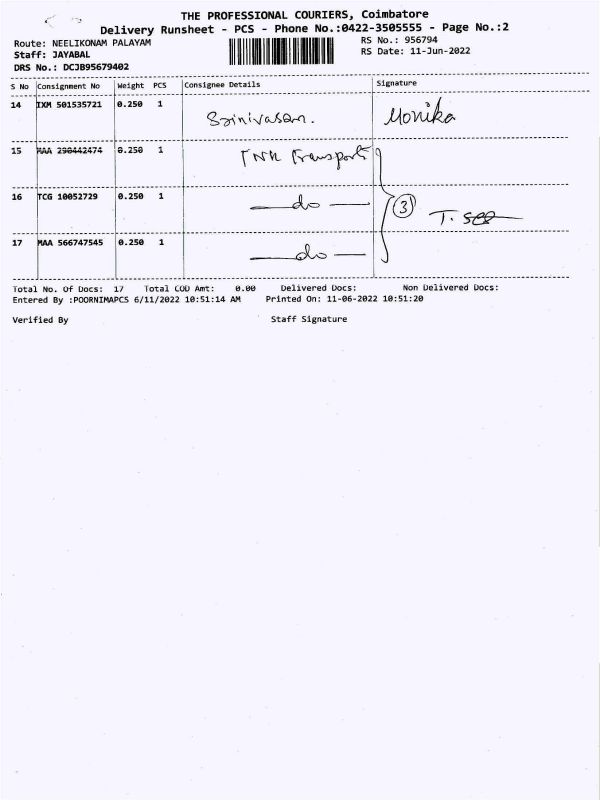 THE PROFESSIONAL COURIERS, Coimbatore
Delivery Runsheet - PCS - Phone No.:0422-3505555 - Page No.:2
Route: NEELIKONAM PALAYAM RS No.: 956794
Staff: JAYABAL RS Date: 11-Jun-2022
DRS No.: DCJB95679402
S No Consignment No Weight PCS Consignee Details Signature
14 IXM 501535721 0.250 1 Srinivasan. Monika
15 MAA 290442474 0.250 1 Transport
16 TCG 10052729 0.250 1 —do— 3
17 MAA 566747545 0.250 1 —do—
Total No. Of Docs: 17 Total COD Amt: 0.00 Delivered Docs: Non Delivered Docs:
Entered By :POORNIMAPCS 6/11/2022 10:51:14 AM Printed On: 11-06-2022 10:51:20
Verified By Staff Signature